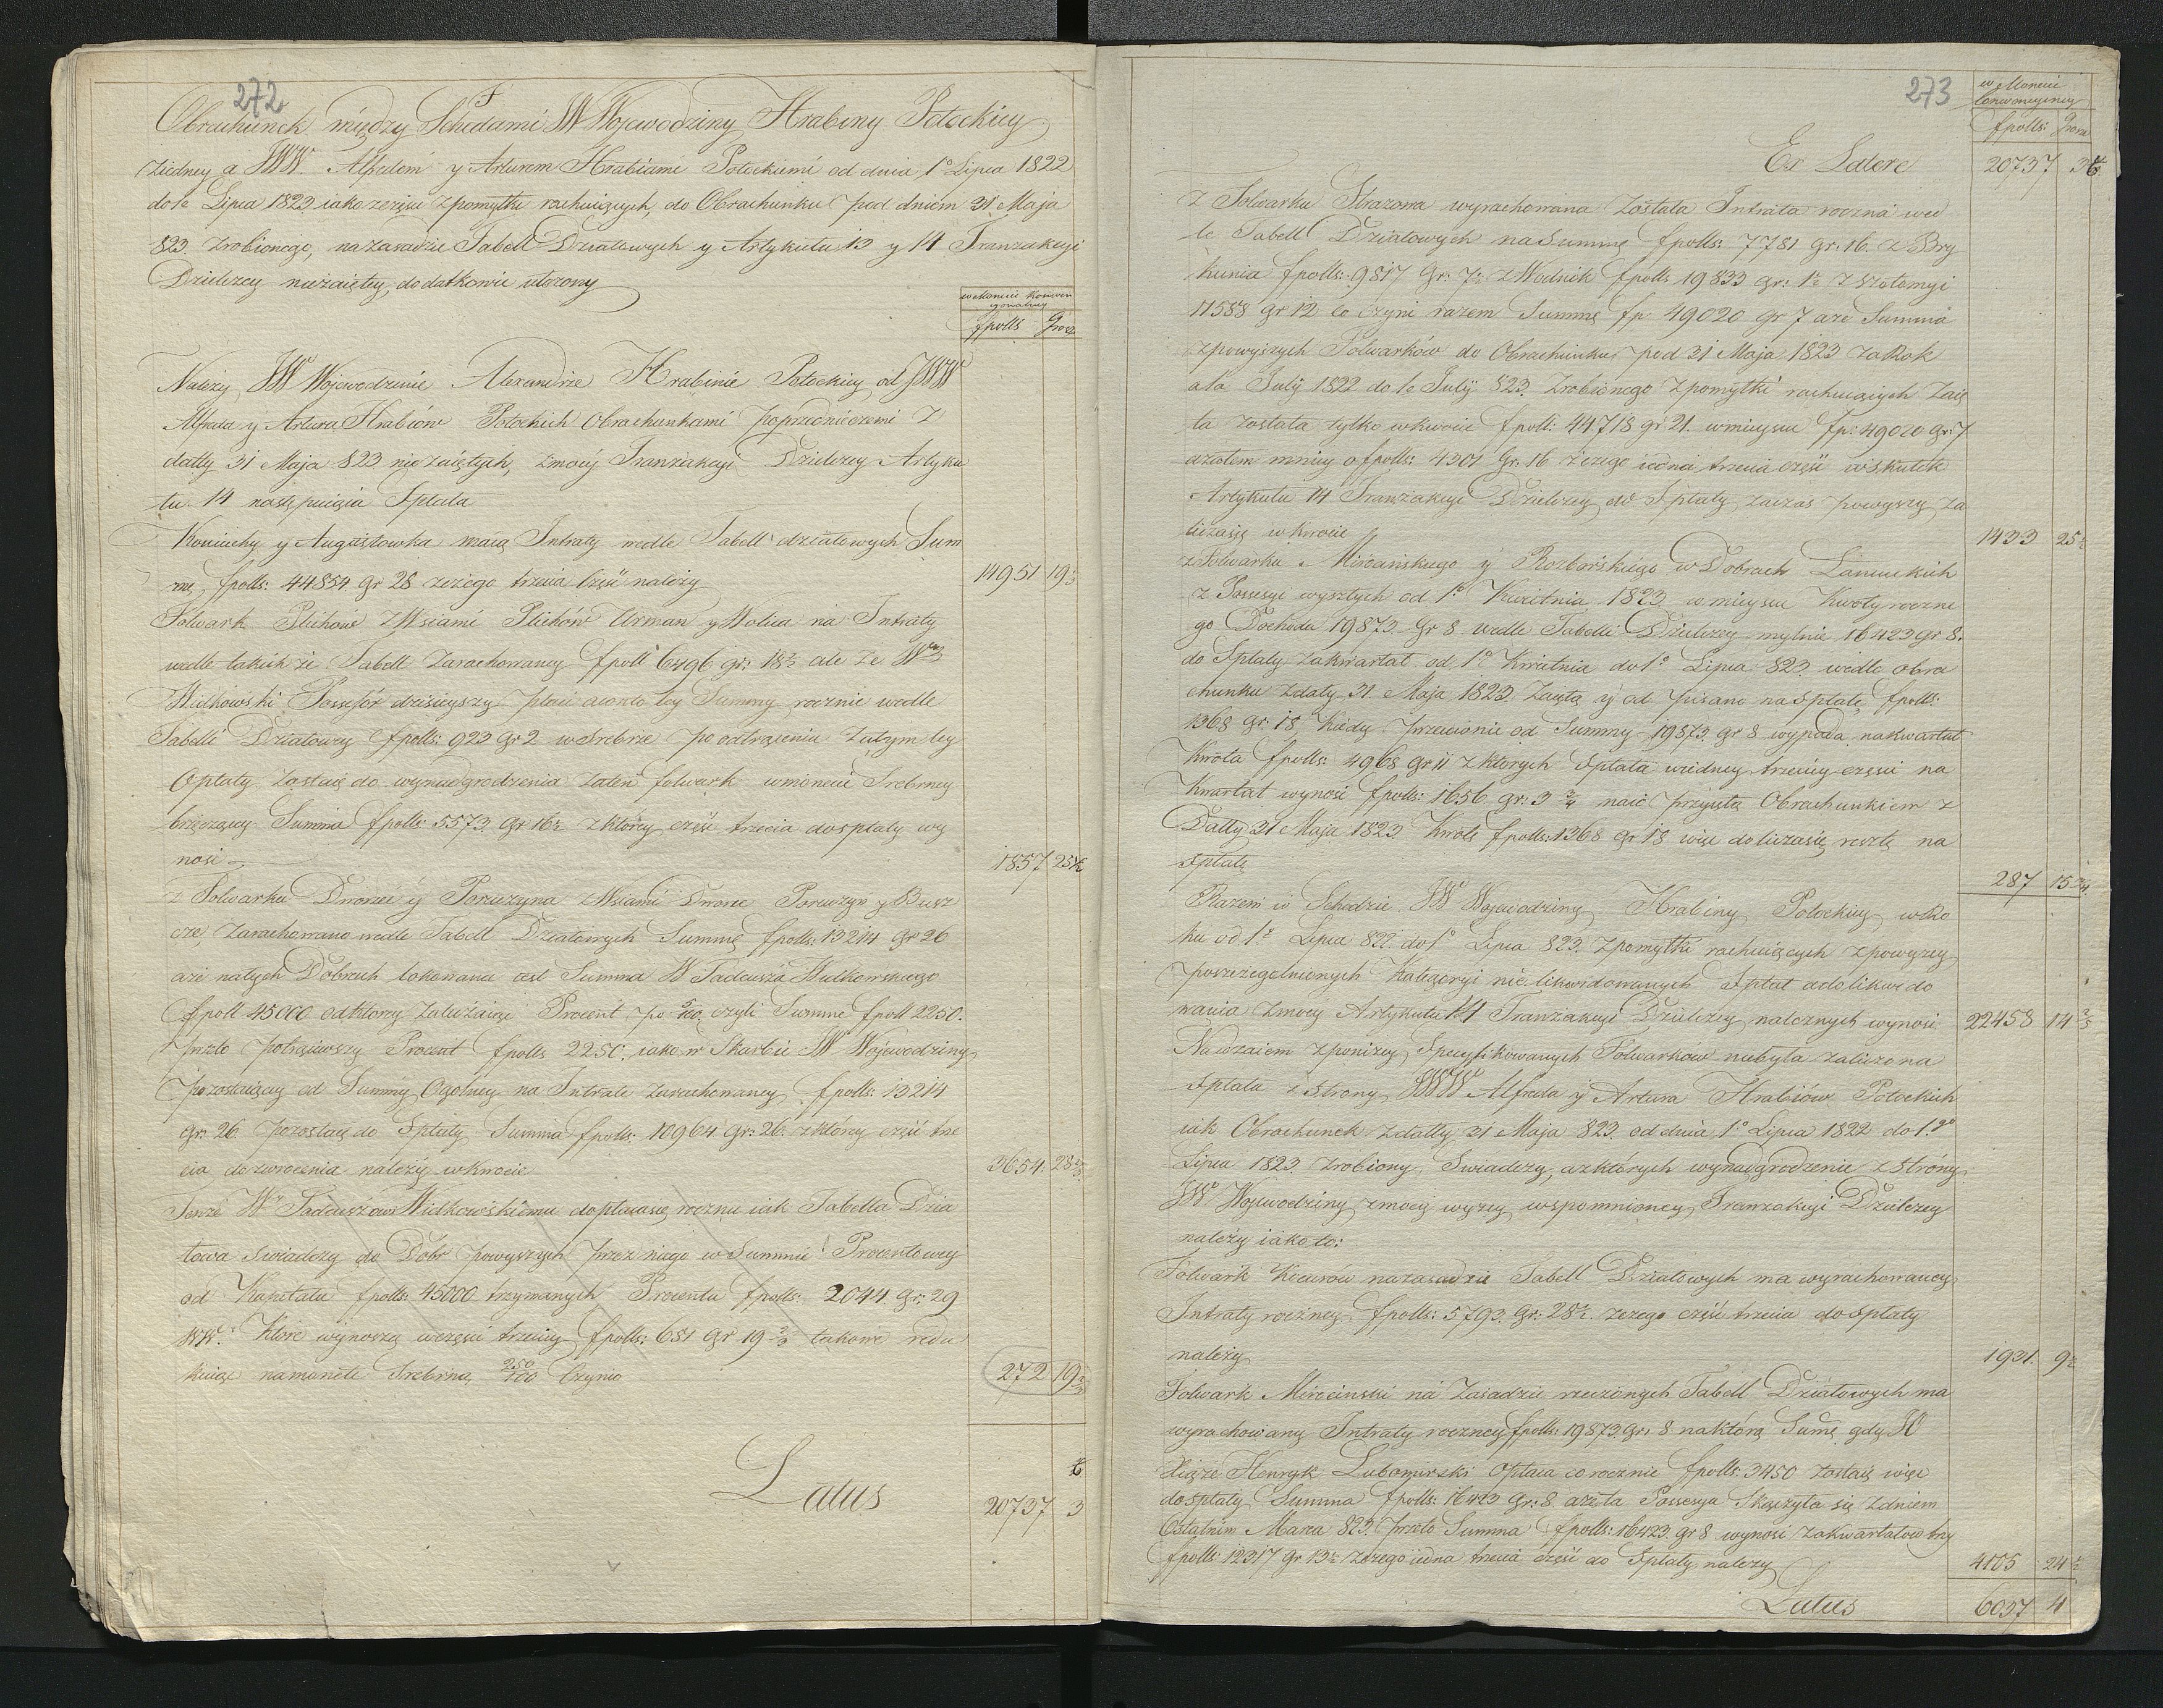 272
F
Obrachunek między Schedami JW Wojewodziny Hrabiny Potockiey
z iedney a JWW. Alfredem y Arturem Hrabiami Potockiemi od dnia 1o Lipca 1822
do 1o Lipca 1823 iako zeszłe z pomyłki rachuiących, do Obrachunku pod dniem 31 Maja
823. zrobionego, na zasadzie Tabell Działowych y Artykułu 13 y 14 Tranzakcyi
Dzielczey niezaięty, dodatkowie utozony
w Monecie Konwen
cyonalney
fpolls Grosz
Nalezy JW Wojewodzinie Alexandrze Hrabinie Potockiey od JWW
Alfreda y Artura Hrabiów Potockich Obrachunkami poprzedniczemi z
datty 31 Maja 823 nie zaiętych, z mocy Tranzakcyi Dzielczey Artyku
łu 14 następuiąca Spłata
Koniuchy y Augustowka maią Intraty wedle Tabell działowych Sum
mę fpolls: 44854 gr 28 z czego trzecia część nalezy 14951 19 1/3
Folwark Plichów z Wsiami Plichów Urman y Wolica na Intraty
wedle takichże Tabell zarachowaney fpoll 6496 gr: 18 1/2 ale że Wny
Witkowski Possesor dzisieyszy płaci a conto tey Summy rocznie wedle
Tabelli Działowey fpolls: 923 gr 2 w Srebrze po odtrąceniu zatym tey
Opłaty zostaie do wynadgrodzenia za ten folwark w monecie Srebrney
brzęczącey Summa fpolls 5573 gr 16 1/2 z którey część trzecia do spłaty wy
nosi 1857 25 1/2
z Folwarku Dworce y Poruczyna z Wsiami Dworce Poruczyn y Busz
cze, zarachowano wedle Tabell Działowych Summę fpolls: 13214 gr 26
a że na tych Dobrach lokowana iest Summa W Tadeusza Witkowskiego
fpoll 45000 od ktorey zaliczaiąc Procent po 5/100 czyli Summę fpoll 2250.
przeto potrąciwszy Procent fpolls 2250. iako w Skarbie JW Wojewodziny
pozostaiącey od Summy Ogolney na Intratę zarachowaney fpolls: 13214
gr: 26. pozostaie do Spłaty Summa fpolls: 10964 gr: 26. z którey część trze
cia do zwrocenia nalezy w kwocie 3654. 28 2/3
Tenze Wu Tadeuszowi Witkowskiemu dopłacasię roczni iak Tabella Dzia
łowa Swiadczy do Dobr powyzszych przez niego w Summie Procentowey
od Kapitału fpolls: 45000 trzymanych Procentu fpolls: 2044 gr: 29
WW. Które wynoszą w części trzeciey fpolls: 681 gr 19 2/3 takowe redu
kuiąc na monetę Srebrną 250/100 Czynią 272 19 2/3
Latus 20737 3
273
w Monecie
Conwencyiney
fpolls: Grosz
Ex Latere 20737 3
z Folwarku Strazowa wyrachowana Została Intrata roczna wed
le Tabell Działowych na Summę fpolls: 7781 gr: 16. z Bry
kunia fpolls: 9817 Gr: 7 1/2 z Wodnik fpolls 19833 gr: 1 1/2 z Szołomyi
11588 gr 12 co Czyni razem Summę fp. 49020 gr 7 a że Summa
z powyzszych Folwarków do Obrachunku pod 31 Maja 1823 za Rok
a 1a July 1822 do 1o July 823. zrobionego z pomyłki rachuiących zaię
ta została tylko w kwocie fpoll: 44718 gr 21. w mieyscu fp: 49020 gr: 7
a zatem mniey o fpolls: 4301 Gr: 16 z czego iedna trzecia część w skutek
Artykułu 14 Tranzakcyi Dzielczey do Spłaty za czas powyzszy za
liczasię w kwocie 1433 25 1/2
z Folwarku Mirocinskiego y Rozborskiego w Dobrach Lancuckich
z Possesyi wyszłych od 1o Kwietnia 1823 w mieysce Kwoty roczne
go Dochodu 19873. Gr 8 wedle Tabelli Dzielczey mylnie 16423 gr 8.
do Spłaty za kwartał od 1o Kwietnia do 1o Lipca 823. wedle obra
chunku z daty 31 Maja 1823. Zaiętą y od pisano na Spłatę fpolls:
1368 gr: 18, kiedy przeciwnie od Summy 19873 gr 8 wypada na kwartał
Kwota fpolls: 4968 gr 11 z ktorych Spłata w iedney trzeciey części na
Kwartał wynosi fpolls: 1656 gr: 3 3/4 naić przyiętą Obrachunkiem z
Datty 31 Maja 1823 Kwotę fpolls: 1368 gr 18 więc doliczasię resztę na
Spłatę 287 15 3/4
Razem w Schedzie JW Wojewodziny Hrabiny Potockiey w Ro
ku od 1o Lipca 822 do 1o Lipca 823. z pomyłki rachuiących z powyzey
poszczegolnionych Kategoryi nie likwidowanych Spłat a do likwido
wania z mocy Artykułu 14 Tranzakcyi Dzielczey naleznych wynosi 22458 14 2/3
Nawzaiem z poniżey Specyfikowanych Folwarków niebyła zaliczona
Spłata z strony JWW Alfreda y Artura Hrabiów Potockich
iak Obrachunek z datty 31 Maja 823. od dnia 1o Lipca 1822 do 1go
Lipca 1823. zrobiony Swiadczy, a z których wynadgrodzenie z strony
JW Wojewodziny z mocy wyzey wspomnioney Tranzakcyi Dzielczey
nalezy iako to:
Folwark Kocurów na zasadzie Tabell Działowych ma wyrachowaney
Intraty roczney fpolls: 5793. gr: 28 1/2. z czego część trzecia do spłaty
nalezy 1931. 9 1/2
Folwark Mirocinski na Zasadzie rzeczonych Tabell Działowych ma
wyrachowaney Intraty roczney fpolls: 19873. gr: 8 na którą Sumę gdy JO
Xiąże Henryk Lubomirski opłaca co rocznie fpolls: 3450 zostaie więc
do spłaty Summa fpolls: 16423 gr: 8 a że ta Possesya Skończyła się z dniem
Ostatnim Marca 823. przeto Summa fpolls: 16423. gr 8 wynosi za kwartałow trzy
fpolls: 12317 gr 13 1/2 z czego iedna trzecia część do Spłaty nalezy 4105 24 1/2
Latus 6037 4